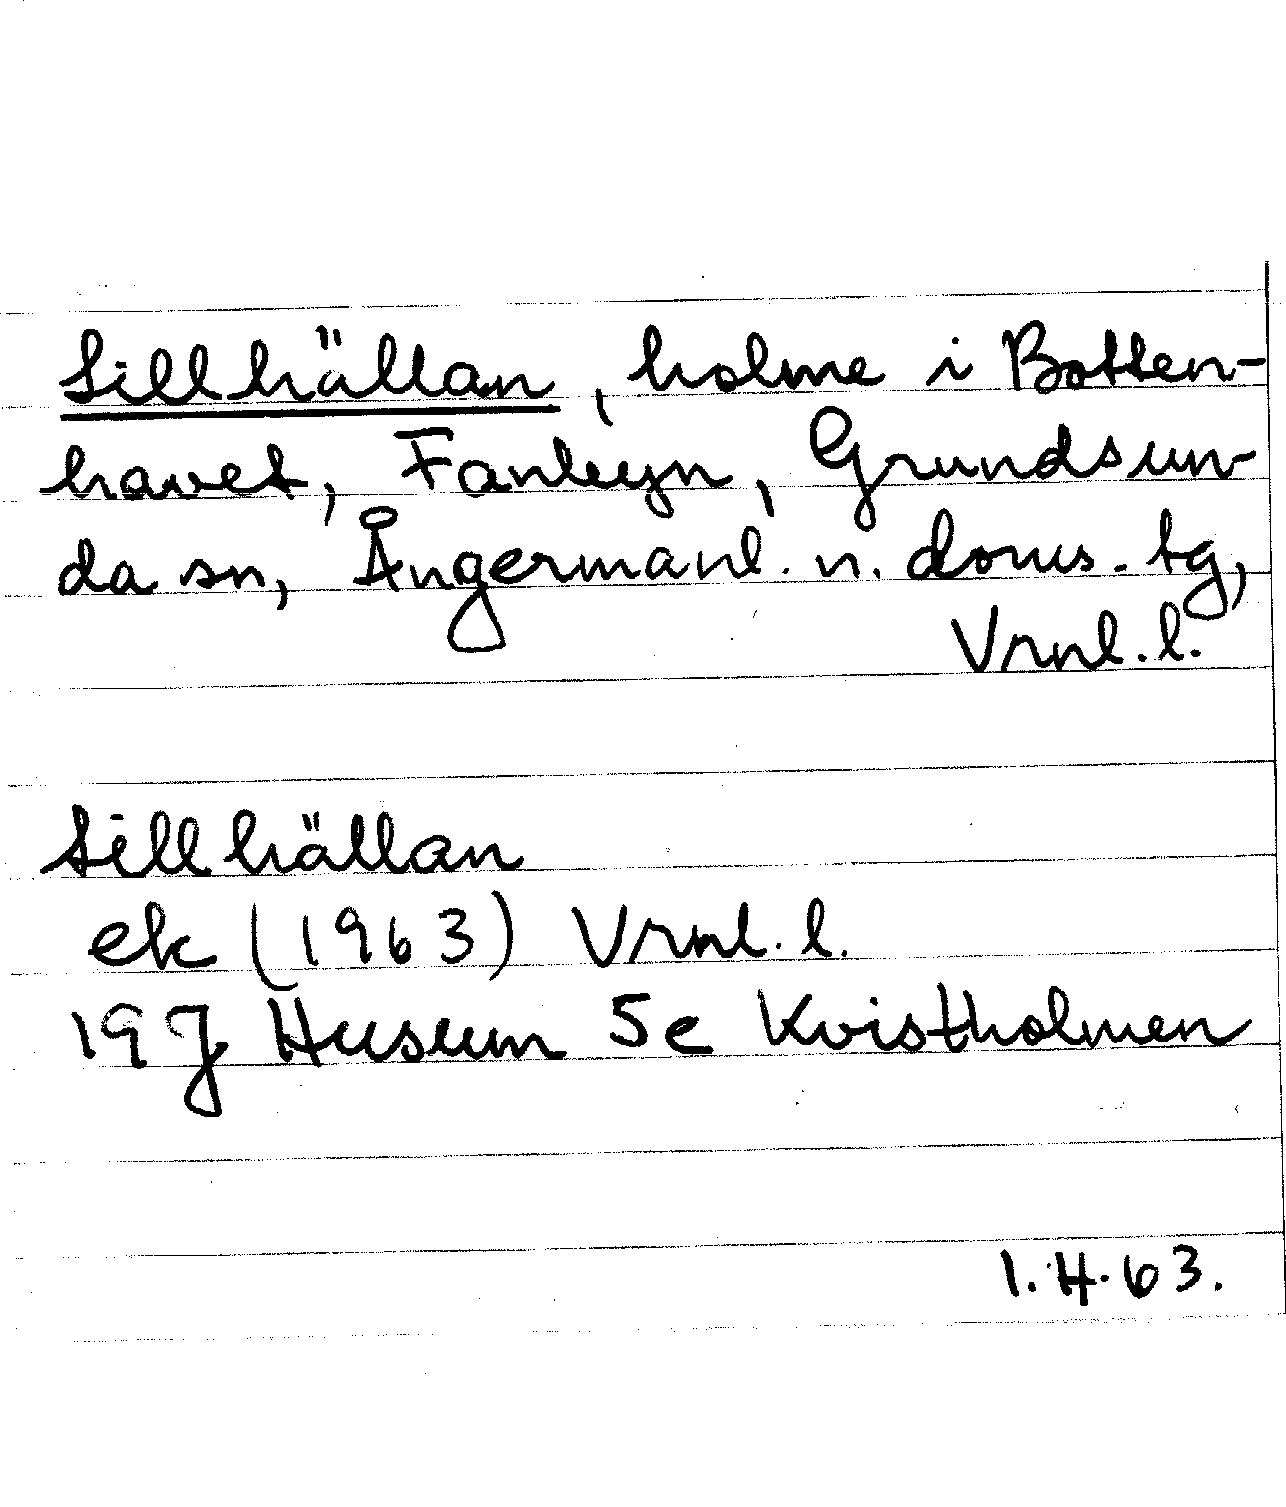 Sillhällan, holme i Botten-
havet, Fanbyn, Grundsun-
da sn, Ångermanl. n. doms. tg,
Vrnl. l.
Sillhällan
ek (1963) Vrnl. l.
19J Husum 5e Kvistholmen
1.4.63.